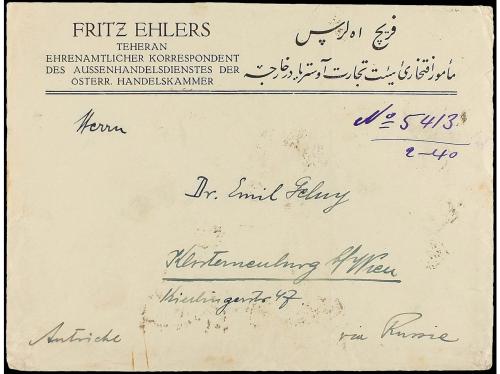 FRITZ EHLERS
TEHERAN
EHRENAMTLICHER KORRESPONDENT
DES AUSSENHANDELSDIENSTES DER
ÖSTERR. HANDELSKAMMER
فریچ اه لرس
مأمور افتخاری هیئت تجارت آوستریا در خارجه
Herrn
No 5413.
2-40
Dr. Emil
Klosterneuburg b/Wien
Kierlingerstr 47
Autriche
via Russie